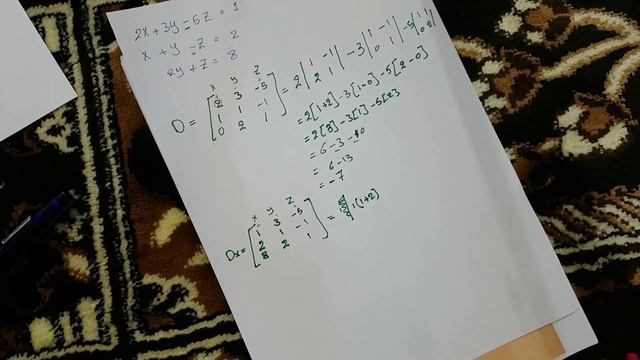 2x+3y-5z = 1
x + y - z = 2
2y + z = 8
x y z
D = [2 3 -5
1 1 -1
0 2 1] = 2|1 -1
2 1| -3|1 -1
0 1| -5|1 1
0 2|
= 2[1+2] -3[1-0] -5[2-0]
= 2[3] -3[1] -5[2]
= 6-3-10
= 6-13
= -7
x y z
Dx = [1 3 -5
2 1 -1
8 2 1] = 1(1+2)